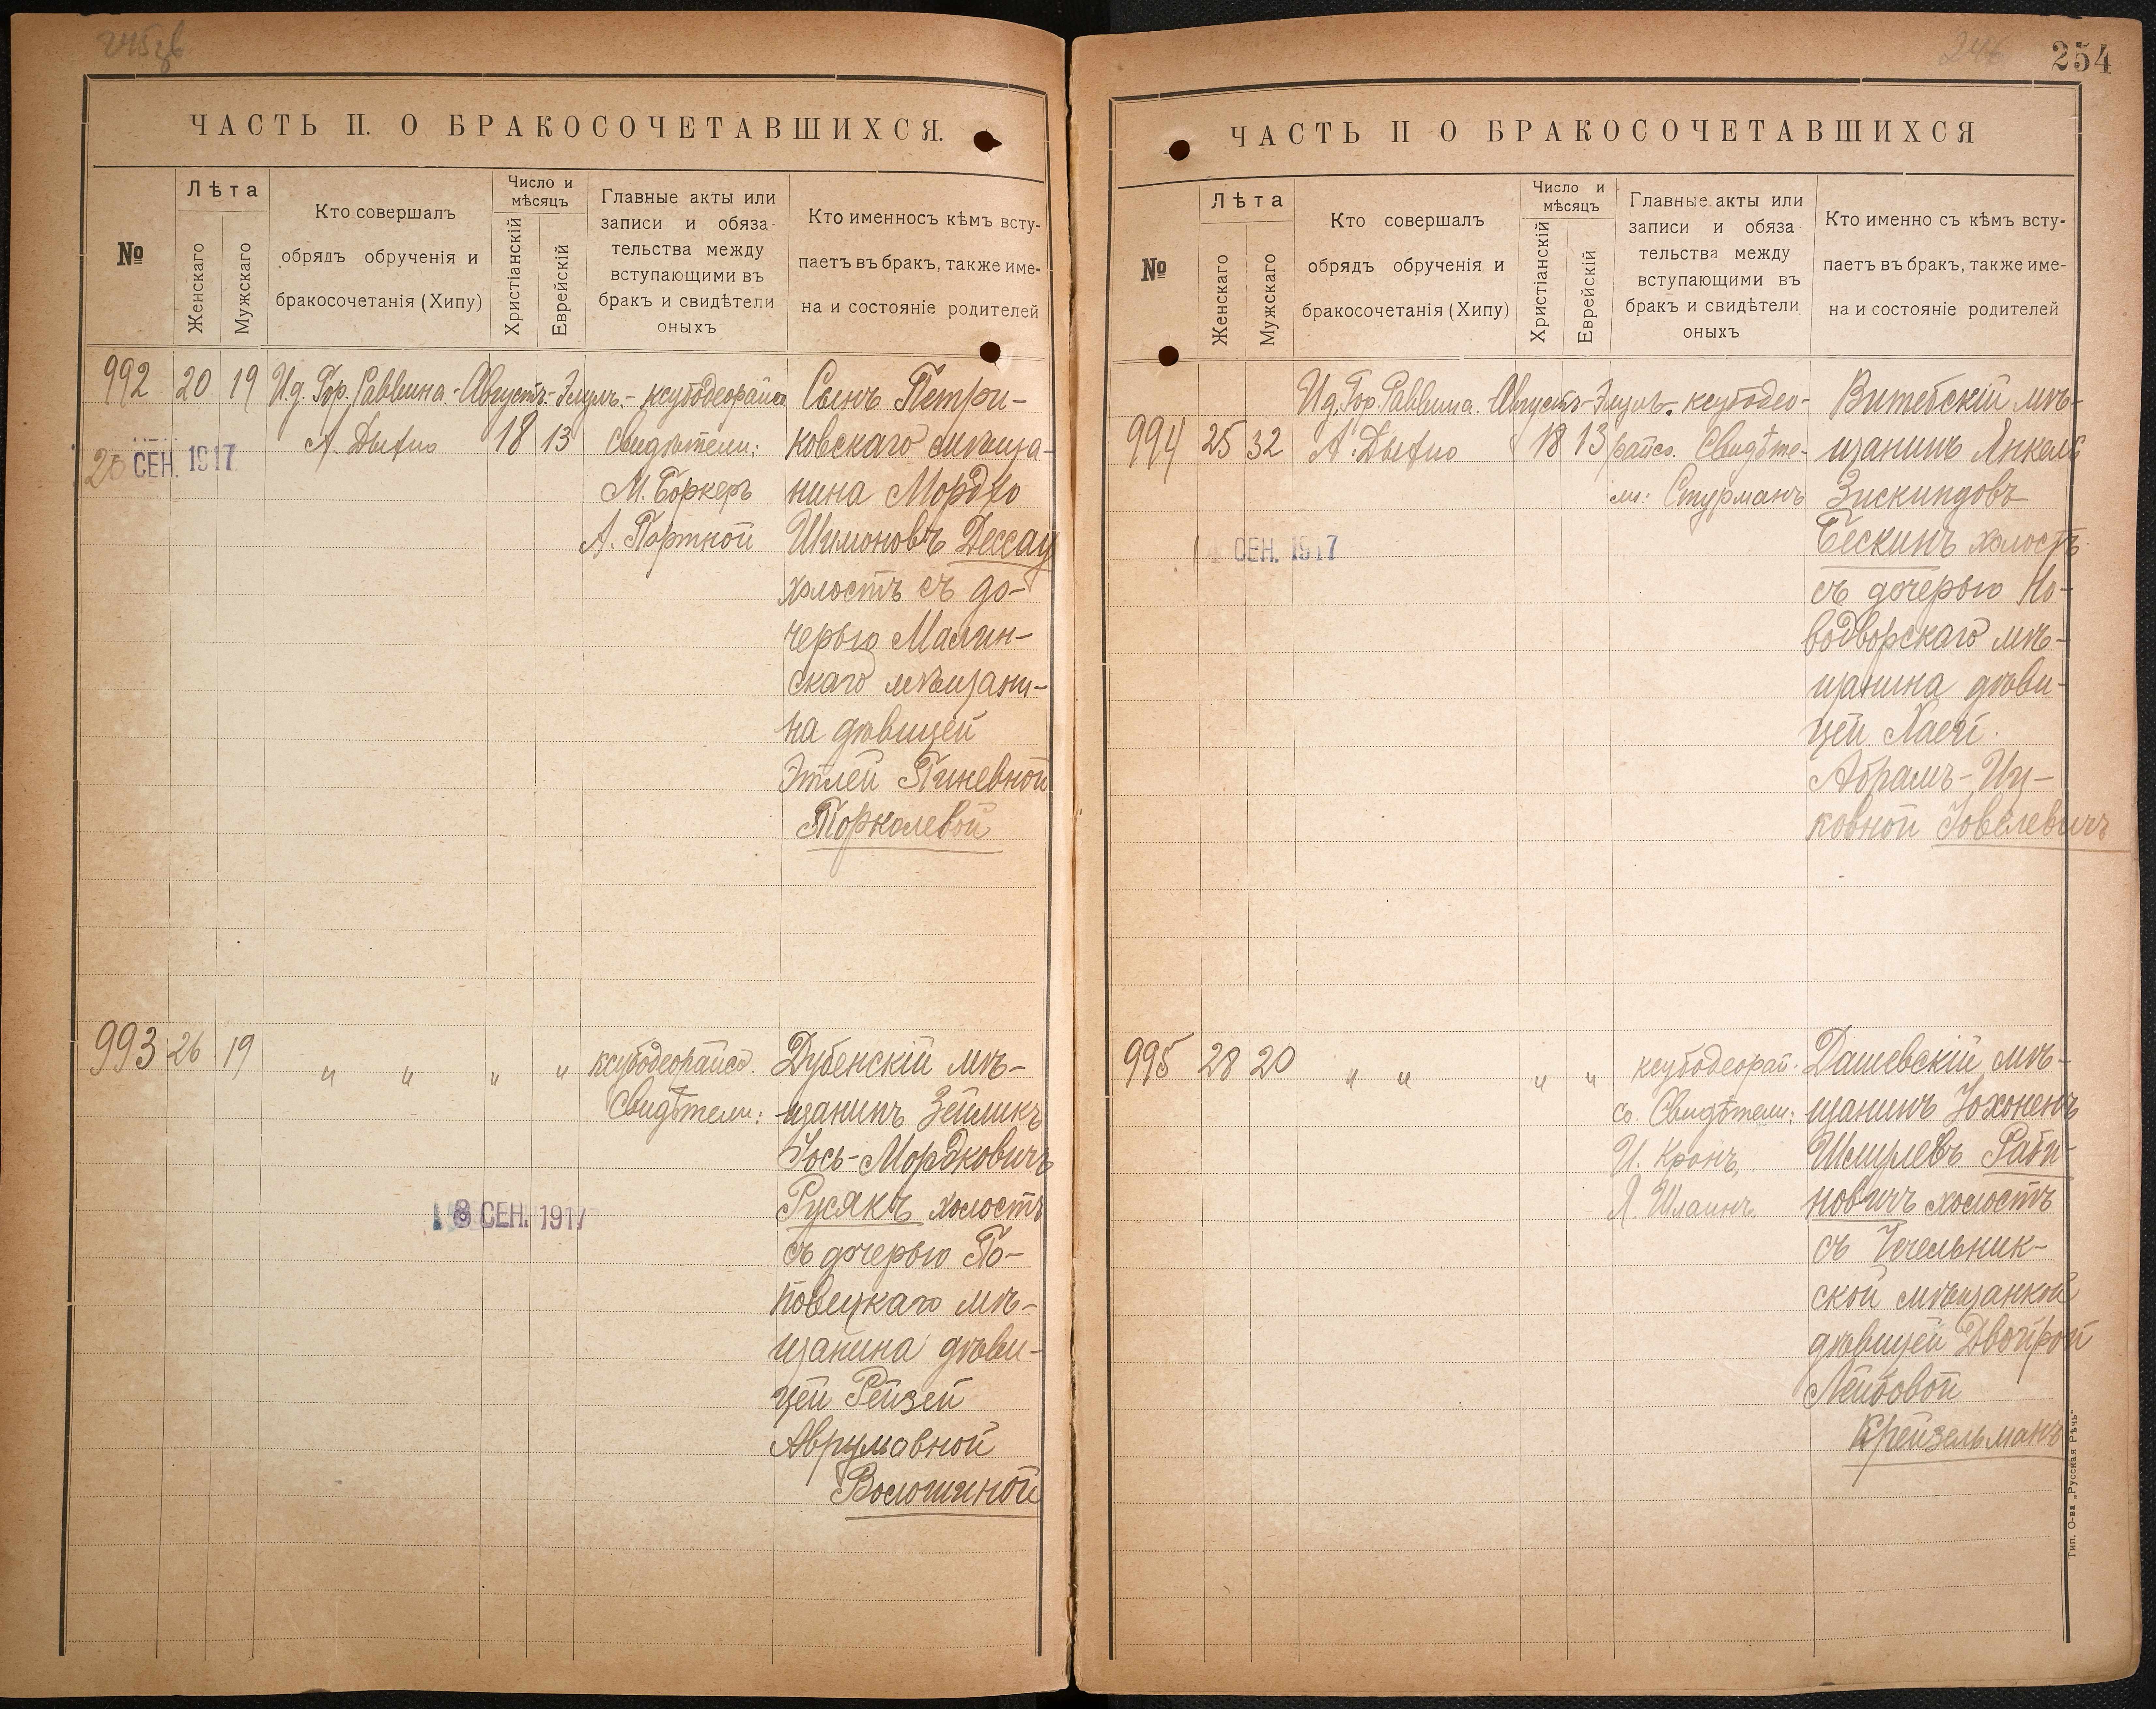 245 об
ЧАСТЬ II. О БРАКОСОЧЕТАВШИХСЯ.
№
Лѣта
Женскаго
Мужскаго
Кто совершалъ
обрядъ обрученія и
бракосочетанія (Хипу)
Число и
мѣсяцъ
Христіанскій
Еврейскій
Главные акты или
записи и обяза-
тельства между
вступающими въ
бракъ и свидѣтели
оныхъ
Кто именносъ кѣмъ всту-
паетъ въ бракъ, также име-
на и состояніе родителей
992 20 19 И.д. Гор. Раввина.- Августъ.- Элулъ.- ксубодеорайсо
А. Дыхно 18 13 свидѣтели:
М. Боркеръ
А. Портной
Сынъ Петри-
ковскаго мѣща-
нина Мордхо
Шимоновъ Дессау
холостъ съ до-
черью Малин-
скаго мѣщани-
на дѣвицей
Этлей Пиневной
Торколевой
20 СЕН. 1917
993 26 19 " " " " ксубодеорайсо.
Свидѣтели:
Дубенскій мѣ-
щанинъ Зейликъ
Іось-Мордковичъ
Русякъ холостъ
съ дочерью По-
повецкаго мѣ-
щанина дѣви-
цей Рейзей
Аврумовной
Волошиной
18 СЕН. 1917
246
254
ЧАСТЬ II О БРАКОСОЧЕТАВШИХСЯ
№
Лѣта
Женскаго
Мужскаго
Кто совершалъ
обрядъ обрученія и
бракосочетанія (Хипу)
Число и
мѣсяцъ
Христіанскій
Еврейскій
Главные акты или
записи и обяза
тельства между
вступающими въ
бракъ и свидѣтели
оныхъ
Кто именно съ кѣмъ всту-
паетъ въ бракъ, также име-
на и состояніе родителей
И.д. Гор. Раввина. Августъ- Элулъ. ксубодео-
994 25 32 А. Дыхно 18 13 райсо. Свидѣте-
ли: Стурманъ
Витебскій мѣ-
щанинъ Янкель
Зискиндовъ
Бескинъ холостъ
съ дочерью Но-
водворскаго мѣ-
щанина дѣви-
цей Хаей
Абрамъ-Иц-
ковной Іовелевичъ
СЕН. 1917
995 28 20 " " " " ксубодеорай-
со. Свидѣтели:
И. Кронъ,
Л. Шлаинъ.
Дашевскій мѣ-
щанинъ Іохоненъ
Шмулевъ Раби-
новичъ холостъ
съ Чечельник-
ской мѣщанкой
дѣвицей Двойрой
Лейбовой
Крейзельманъ
Тип. О-ва „Русская Рѣчь“